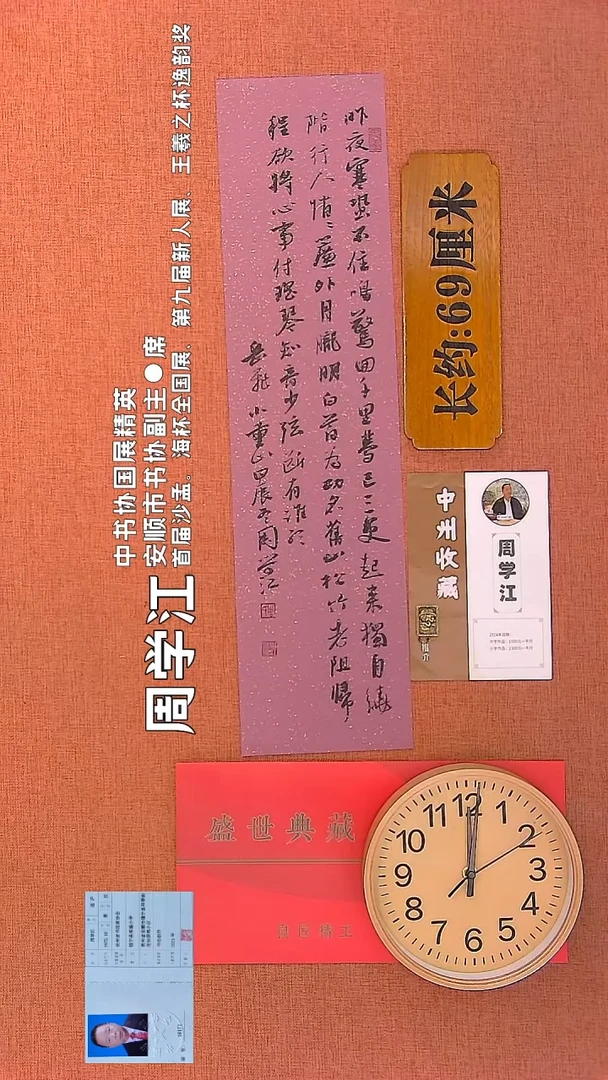 周学江
中书协国展精英
安顺市书协副主●席
首届沙孟。海杯全国展、第九届新人展、王羲之杯逸韵奖
昨夜寒蛩不住鳴驚回千里夢已三更起来獨自繞
階行人悄悄簾外月朧明白首为功名舊山松竹老阻歸
程欲將心事付瑶琴知音少弦断有誰听
岳飛小重山甲辰冬周学江
长约:69厘米
中州收藏
推介
周学江
盛世典藏
12
1
2
3
4
5
6
7
8
9
10
11